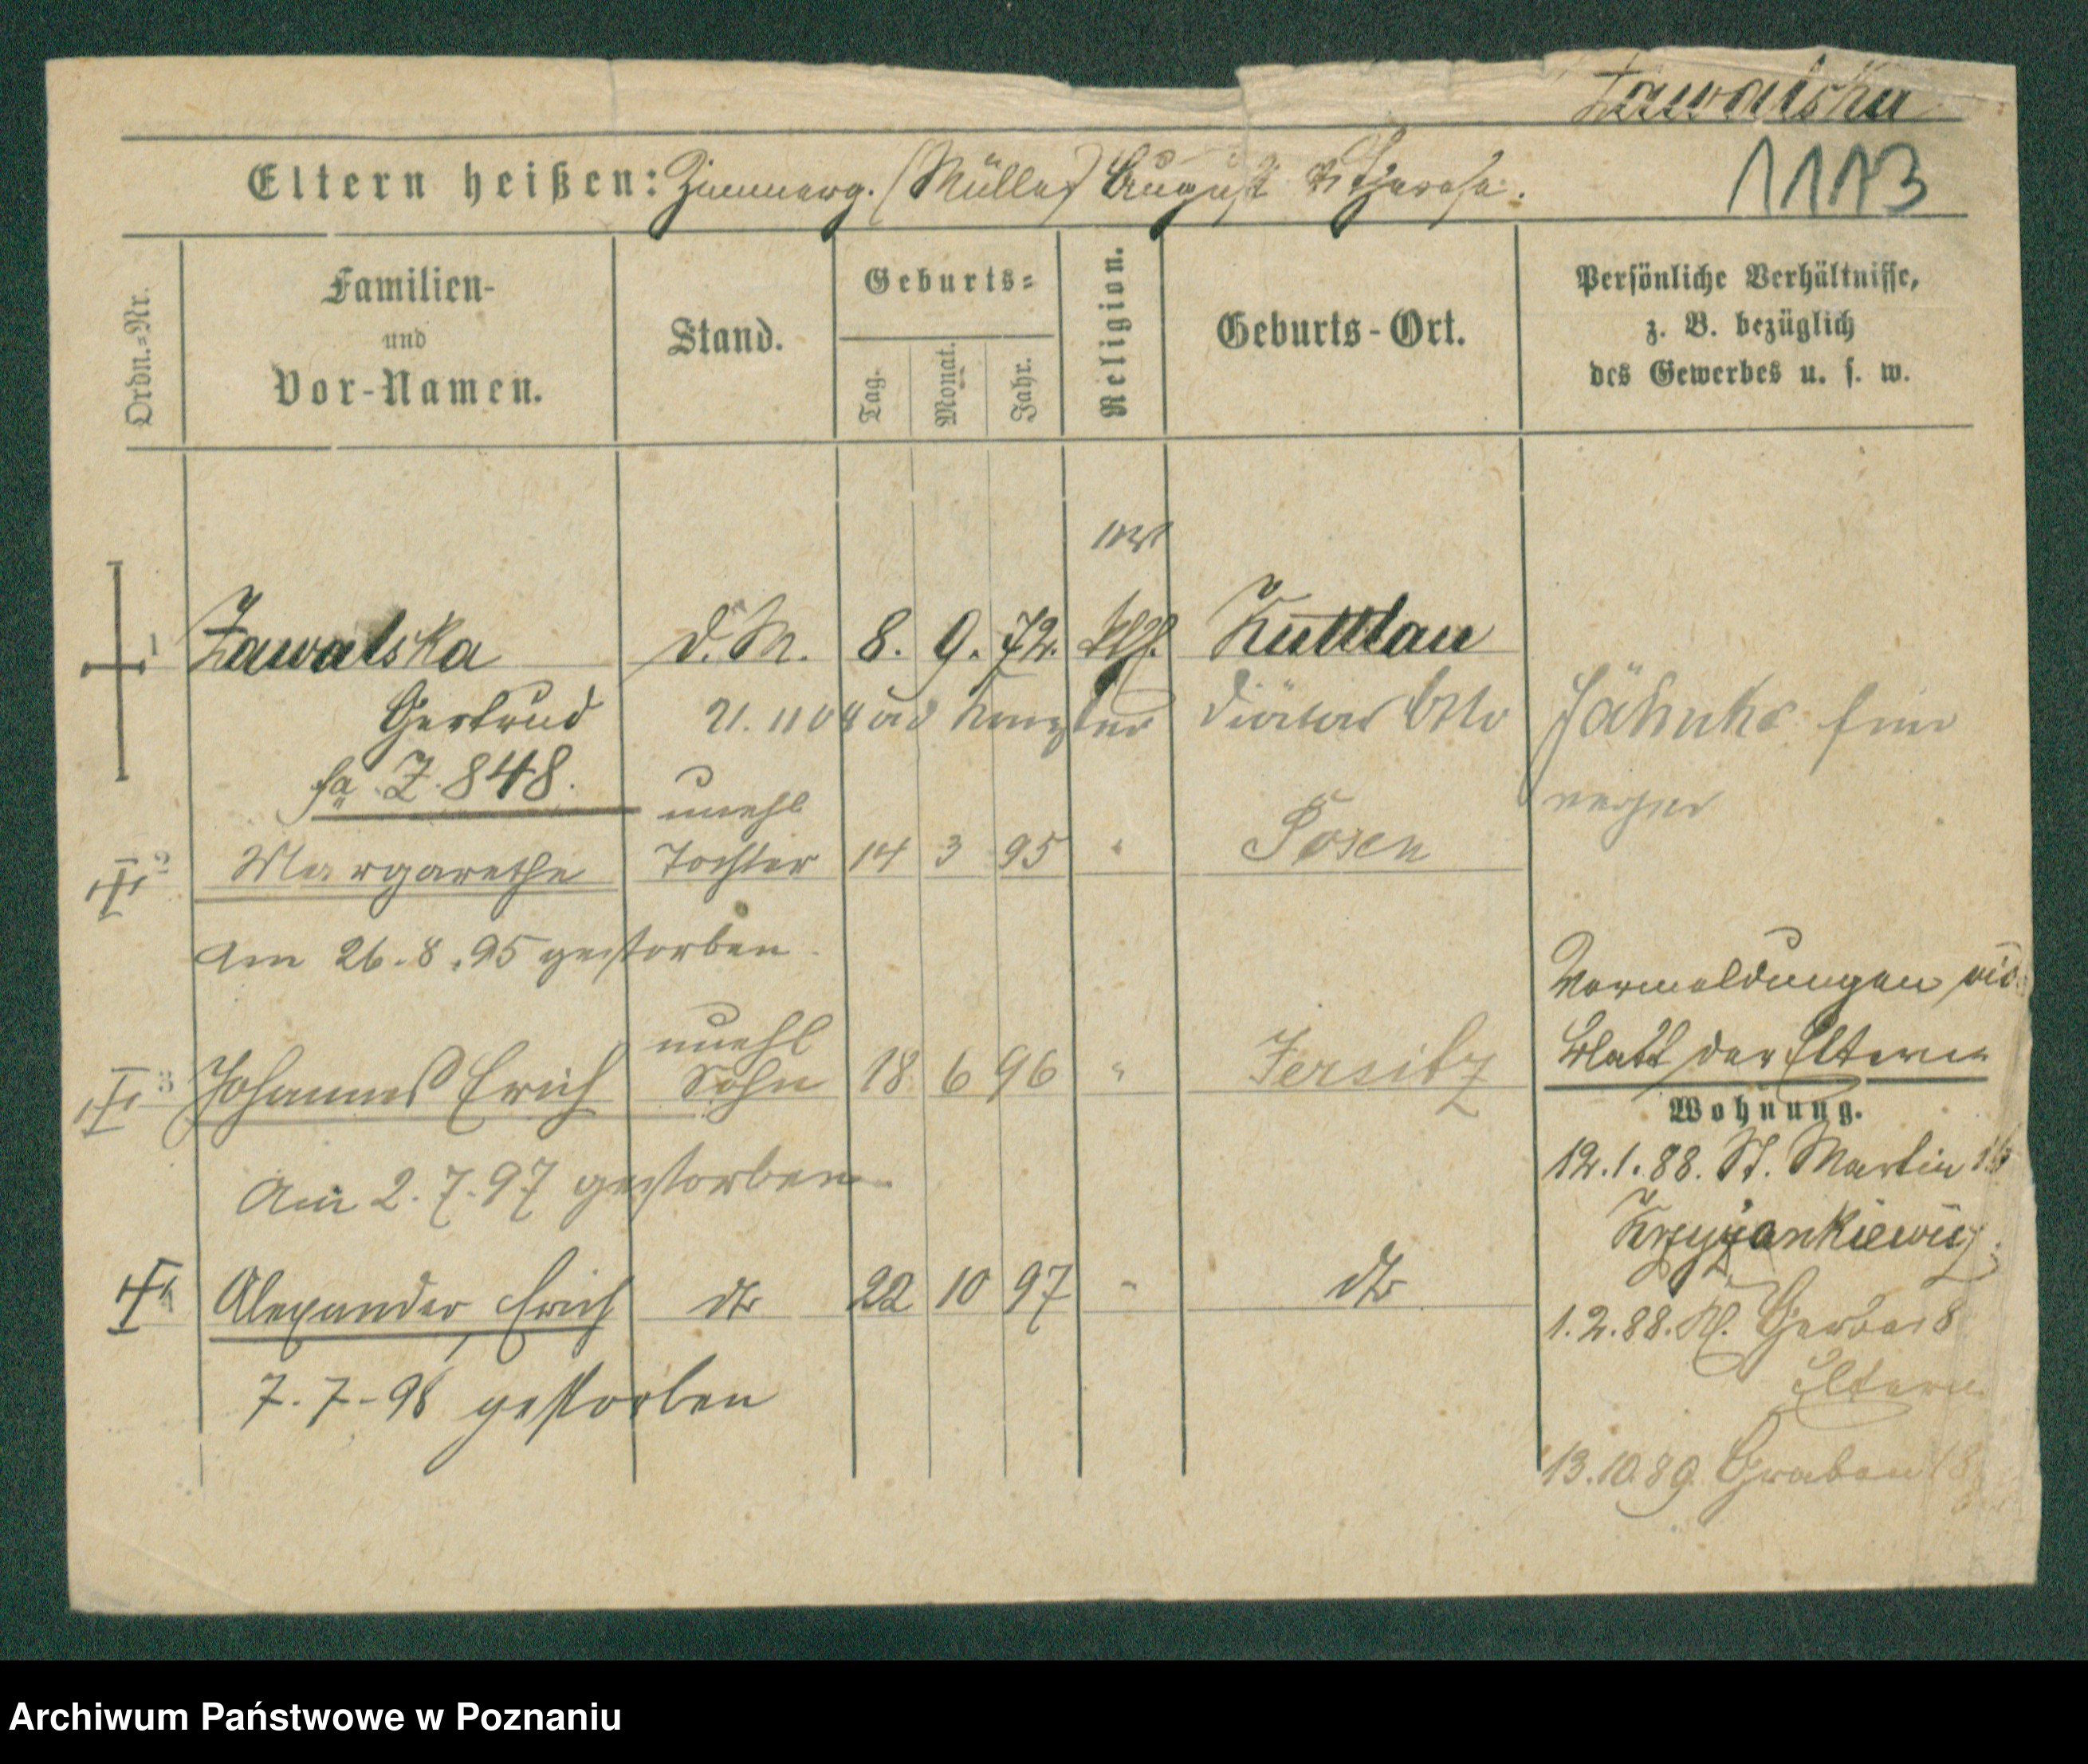 Zawalska
Eltern heißen: (Müller) August u Therese.
1113
Ordn.-Nr.
Familien-
und
Vor-Namen.
Stand.
Geburts-
Tag.
Monat.
Jahr.
Religion.
Geburts-Ort.
Persönliche Verhältnisse,
z. B. bezüglich
des Gewerbes u. s. w.
1 Zawalska d. M. 8. 9. 72. Kuttlau
Gertrud 21. 11 04 Diätar Otto Jähnke
fa Z. 848.
unehl
2 Margarethe Tochter 14 3 95 " Posen
Am 26.8.95 gestorben.
Vormeldungen vid.
Blatt der Eltern
unehl
3 Johannes Erich Sohn 18 6 96 " Jersitz
Wohnung.
12.1.88. St. Martin
Am 2.7.97 gestorben
Krzyżankiewicz
4 Alexander Erich dto 22 10 97 " dto
1.2.88. Kl. Gerber 8
Eltern
7.7-98 gestorben
13.10.89. Graben 18
Archiwum Państwowe w Poznaniu